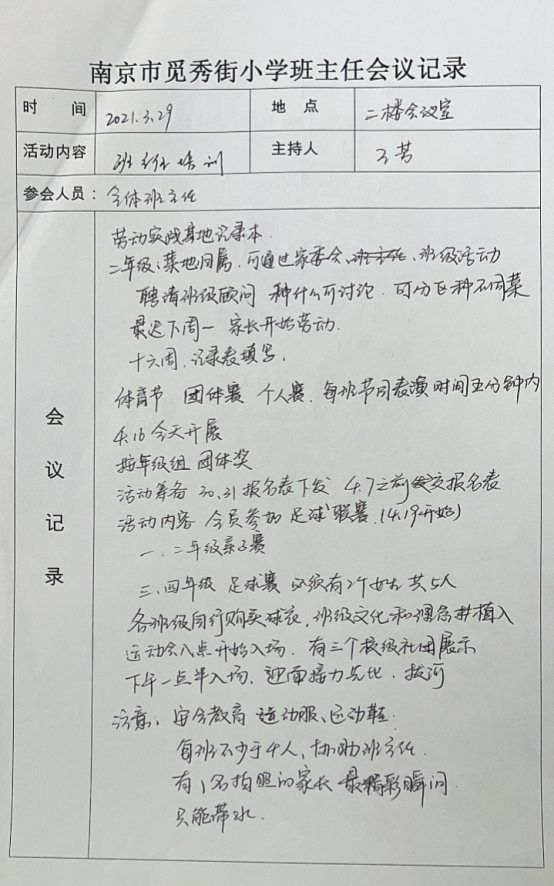 南京市觅秀街小学班主任会议记录
时 间 2021.3.29 地 点 二楼会议室
活动内容 班主任培训 主持人
参会人员: 全体班主任
会议记录
劳动实践基地记录本
二年级:菜地归属,可通过家委会、班主任、班级活动
聘请班级顾问 种什么可讨论,可分区种不同菜
最迟下周一 家长开始劳动.
十六周,记录表填写,
体育节 团体赛 个人赛,每班节目表演 时间五分钟内
4.16 全天开展
按年级组 团体奖
活动筹备 30、31报名表下发 4.7之前交报名表
活动内容 全员参加 足球联赛(4.19开始)
一、二年级亲子赛
三、四年级 足球赛 必须有2个女生 共5人
各班级自行购买球衣,班级文化和理念要植入
运动会八点开始入场,有三个校级社团展示
下午一点半入场,迎面接力先比,拔河
注意: 安全教育 运动服、运动鞋
每班不少于4人,协助班主任.
有1名拍照的家长 最精彩瞬间
只能带水.